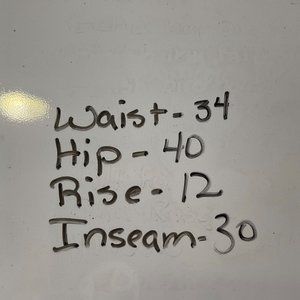 Waist- 34
Hip - 40
Rise - 12
Inseam- 30